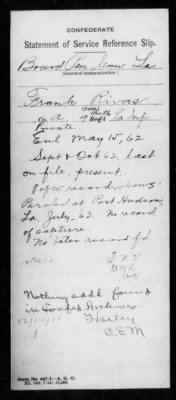 CONFEDERATE
Statement of Service Reference Slip.
Board Pen Com La
Frank Rivas
Co A, 9 Batt'n La Inf
Private
Enl May 15, 62
Sept & Oct 62, last
on file, present.
P of W record shows:
Paroled at Port Hudson,
La. July, 63. No record
of capture.
No later record fd
Nothing addl found
in Confed Archives
12/12/
Hailey
C.E.M
1